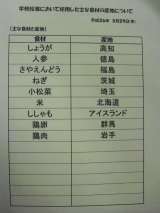 学校給食において使用した主な食材の産地について
(主な食材の産地)
食材 産地
しょうが 高知
人参 徳島
さやえんどう 福島
ねぎ 茨城
小松菜 埼玉
米 北海道
ししゃも アイスランド
鶏卵 群馬
鶏肉 岩手